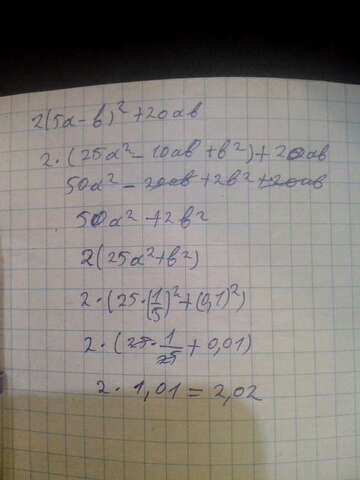 2(5a-b)²+20ab
2·(25a²-10ab+b²)+20ab
50a²-20ab+2b²+20ab
50a²+2b²
2(25a²+b²)
2·(25·(1/5)²+(0,1)²)
2·(25·1/25+0,01)
2·1,01=2,02